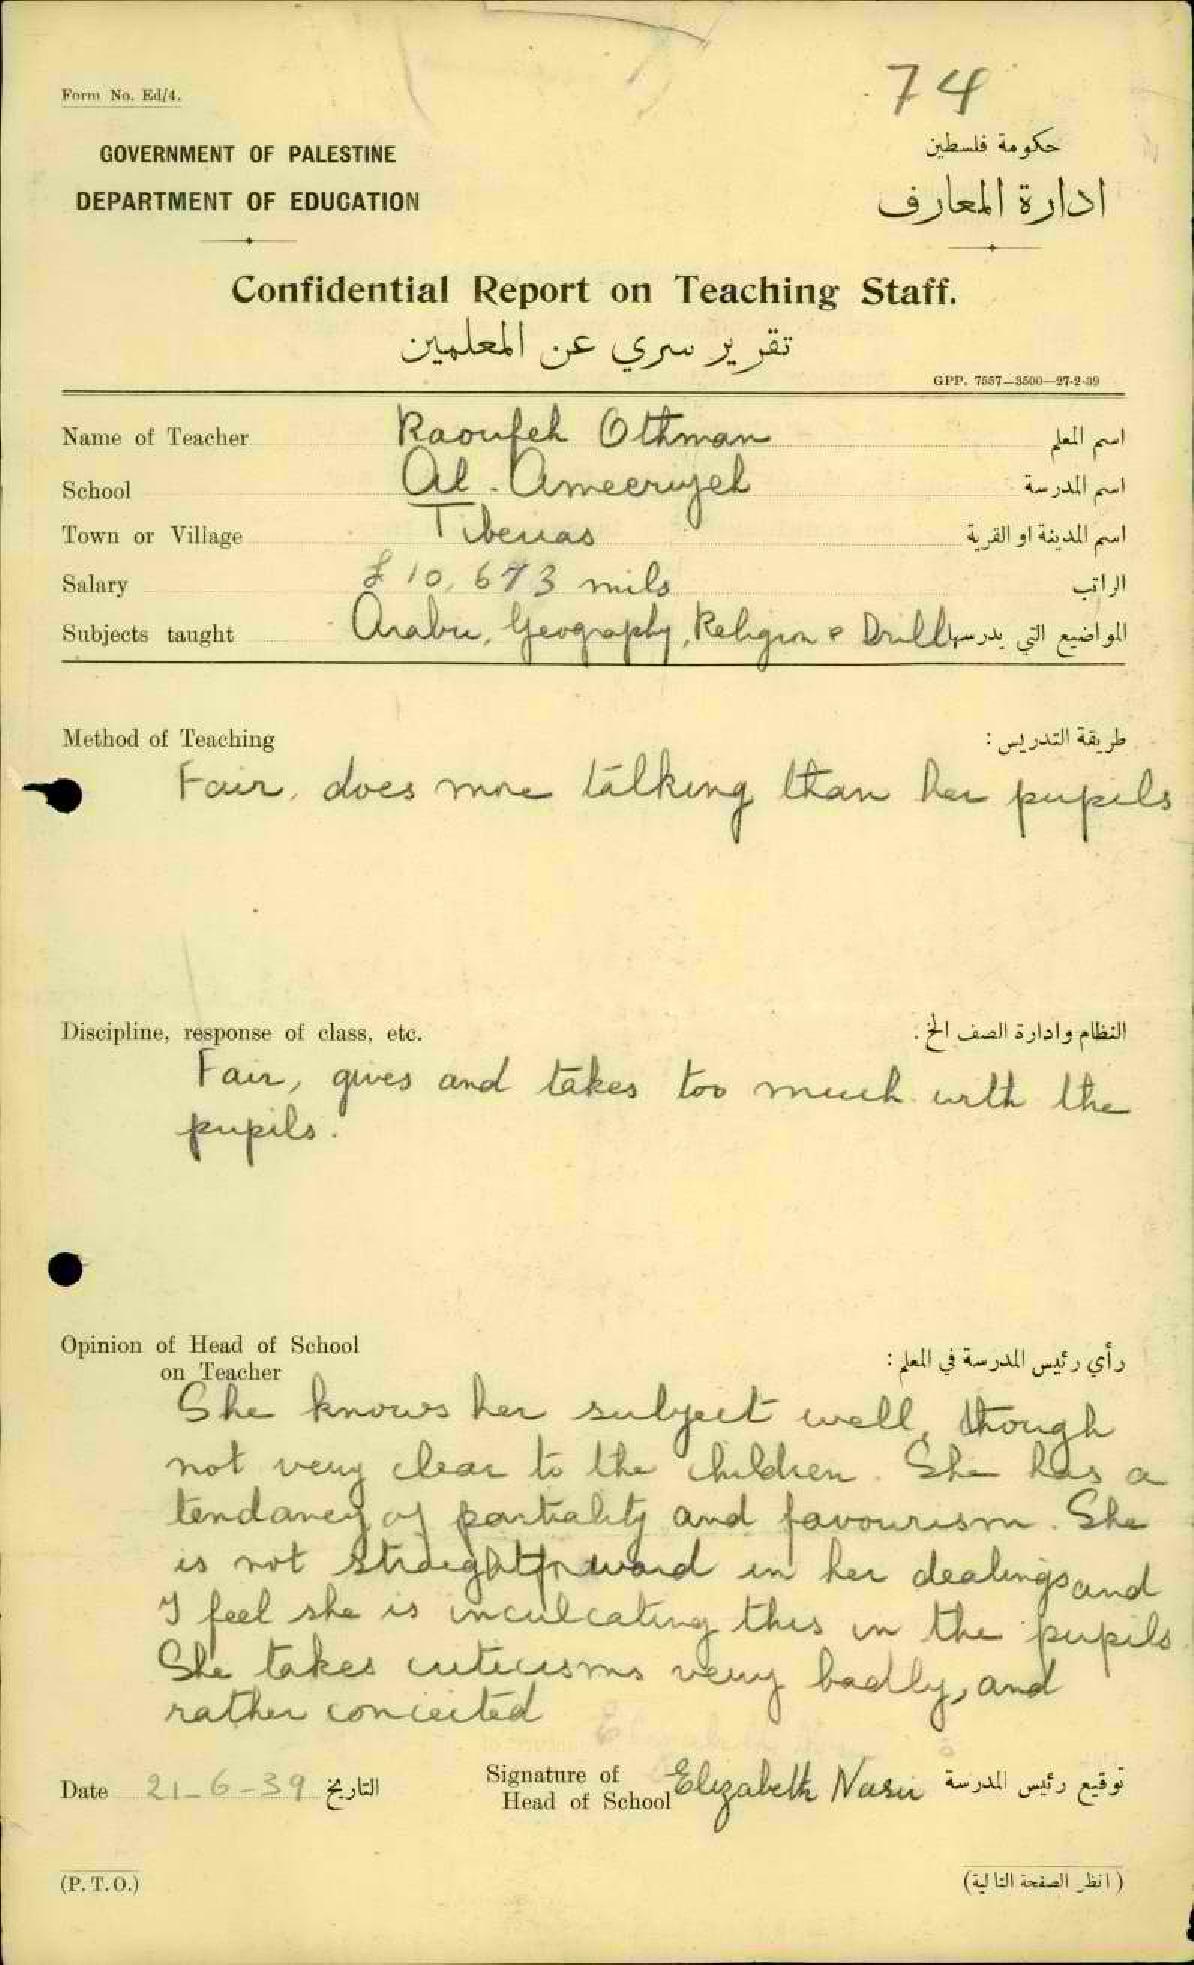 74
Form No. Ed/4.
GOVERNMENT OF PALESTINE
حكومة فلسطين
DEPARTMENT OF EDUCATION
ادارة المعارف
Confidential Report on Teaching Staff.
تقرير سري عن المعلمين
GPP. 7557—3500—27-2-39
Name of Teacher Raoufeh Othman اسم المعلم
School Al-Ameeriyeh اسم المدرسة
Town or Village Tiberias اسم المدينة او القرية
Salary £ 10,673 mils الراتب
Subjects taught Arabic, Geography, Religion & Drill المواضيع التي يدرسها
Method of Teaching طريقة التدريس :
Fair, does more talking than her pupils
Discipline, response of class, etc. النظام وادارة الصف الخ .
Fair, gives and takes too much with the
pupils.
Opinion of Head of School
on Teacher
رأي رئيس المدرسة في المعلم :
She knows her subject well, though
not very clear to the children. She has a
tendancy of partiality and favourism. She
is not straightforward in her dealings and
I feel she is inculcating this in the pupils
She takes criticisms very badly, and
rather conceited
Date 21-6-39 التاريخ
Signature of
Head of School Elizabeth Nasir توقيع رئيس المدرسة
(P.T.O.)
(انظر الصفحة التالية)